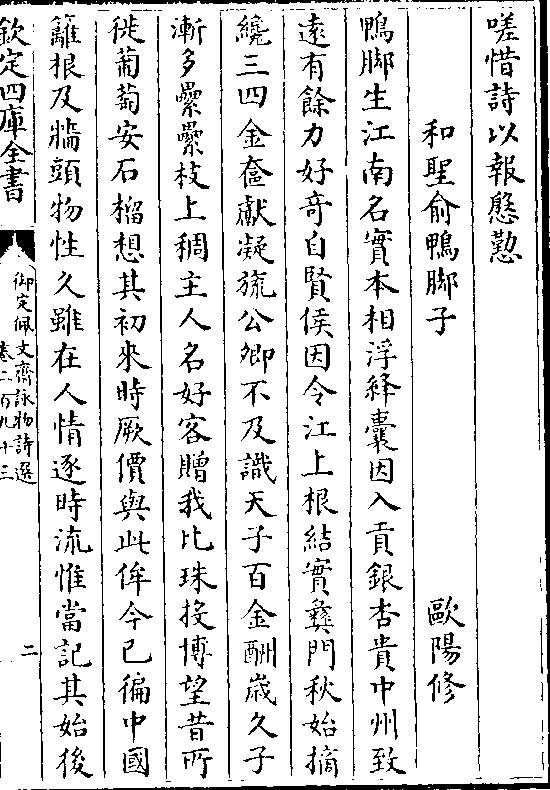 嗟惜詩以報慇懃
和聖俞鴨脚子
歐陽修
鴨脚生江南名實本相浮絳囊因入貢銀杏貴中州致
逺有餘力好竒自賢侯因令江上根結實夷門秋始摘
纔三四金奩獻凝旒公卿不及識天子百金酬嵗久子
漸多纍纍枝上稠主人名好客贈我比珠投博望昔所
徙葡萄安石榴想其初來時厥價與此侔今已徧中國
籬根及牆頭物性久雖在人情逐時流惟當記其始後
欽定四庫全書
御定佩文齋詠物詩選
卷二百九十三
二